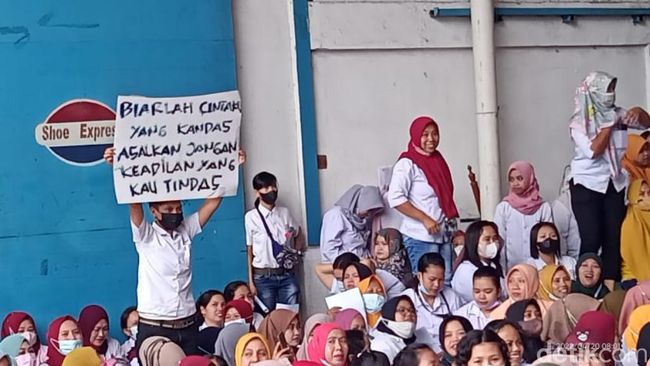 BIARLAH CINTAKU
YANG KANDAS
ASALKAN JANGAN
KEADILAN YANG
KAU TINDAS
Shoe Express
detikcom